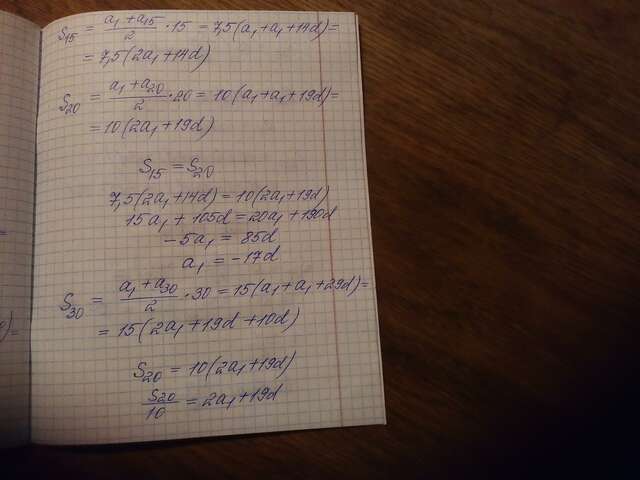 S₁₅ = (a₁ + a₁₅)/2 · 15 = 7,5(a₁ + a₁ + 14d) =
= 7,5(2a₁ + 14d)
S₂₀ = (a₁ + a₂₀)/2 · 20 = 10(a₁ + a₁ + 19d) =
= 10(2a₁ + 19d)
S₁₅ = S₂₀
7,5(2a₁ + 14d) = 10(2a₁ + 19d)
15a₁ + 105d = 20a₁ + 190d
-5a₁ = 85d
a₁ = -17d
S₃₀ = (a₁ + a₃₀)/2 · 30 = 15(a₁ + a₁ + 29d) =
= 15(2a₁ + 19d + 10d)
S₂₀ = 10(2a₁ + 19d)
S₂₀/10 = 2a₁ + 19d